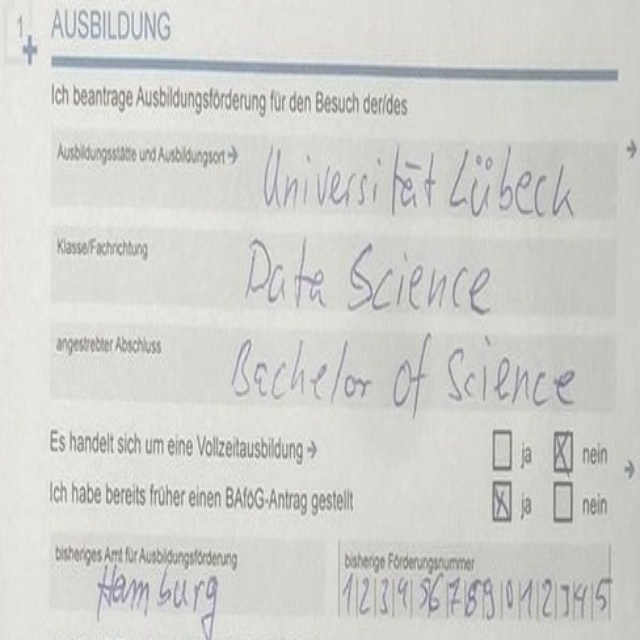 1 AUSBILDUNG
Ich beantrage Ausbildungsförderung für den Besuch der/des
Ausbildungsstätte und Ausbildungsort → Universität Lübeck
Klasse/Fachrichtung Data Science
angestrebter Abschluss Bachelor of Science
Es handelt sich um eine Vollzeitausbildung → ja nein
Ich habe bereits früher einen BAföG-Antrag gestellt ja nein
bisheriges Amt für Ausbildungsförderung bisherige Förderungsnummer
Hamburg 123456789012345